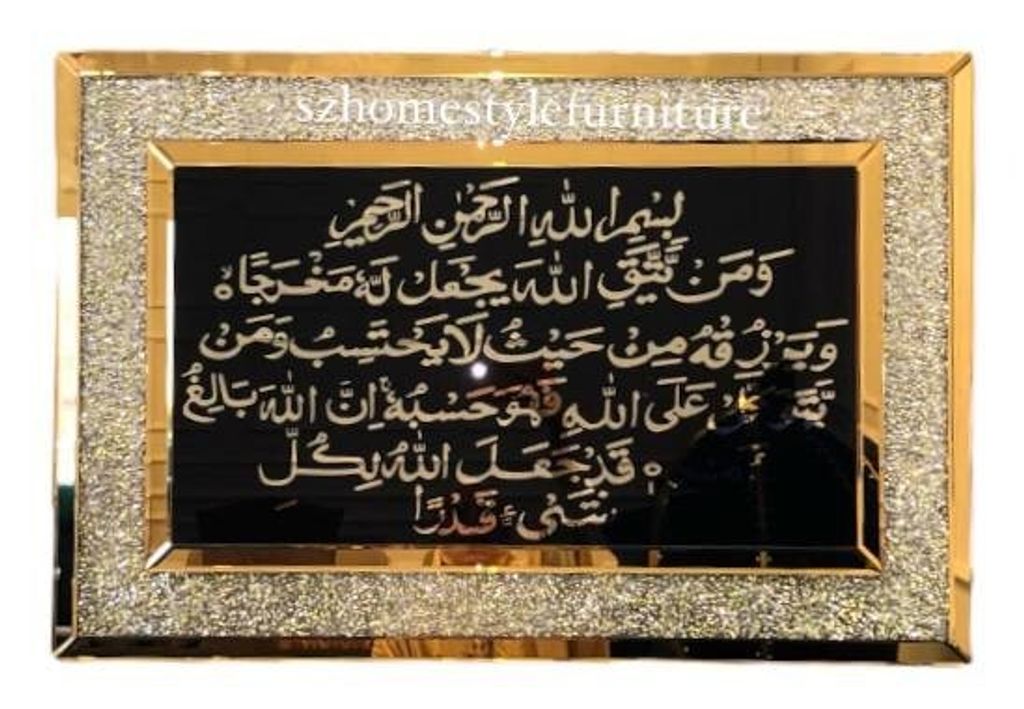 szhomestylefurniture
بِسْمِ اللّٰهِ الرَّحْمٰنِ الرَّحِيْمِ
وَمَنْ يَّتَّقِ اللّٰهَ يَجْعَلْ لَهٗ مَخْرَجًاۙ
وَيَرْزُقْهُ مِنْ حَيْثُ لَا يَحْتَسِبُ وَمَنْ
عَلَى اللّٰهِ فَهُوَ حَسْبُهٗ اِنَّ اللّٰهَ بَالِغُ
قَدْ جَعَلَ اللّٰهُ لِكُلِّ
شَىْءٍ قَدْرًا